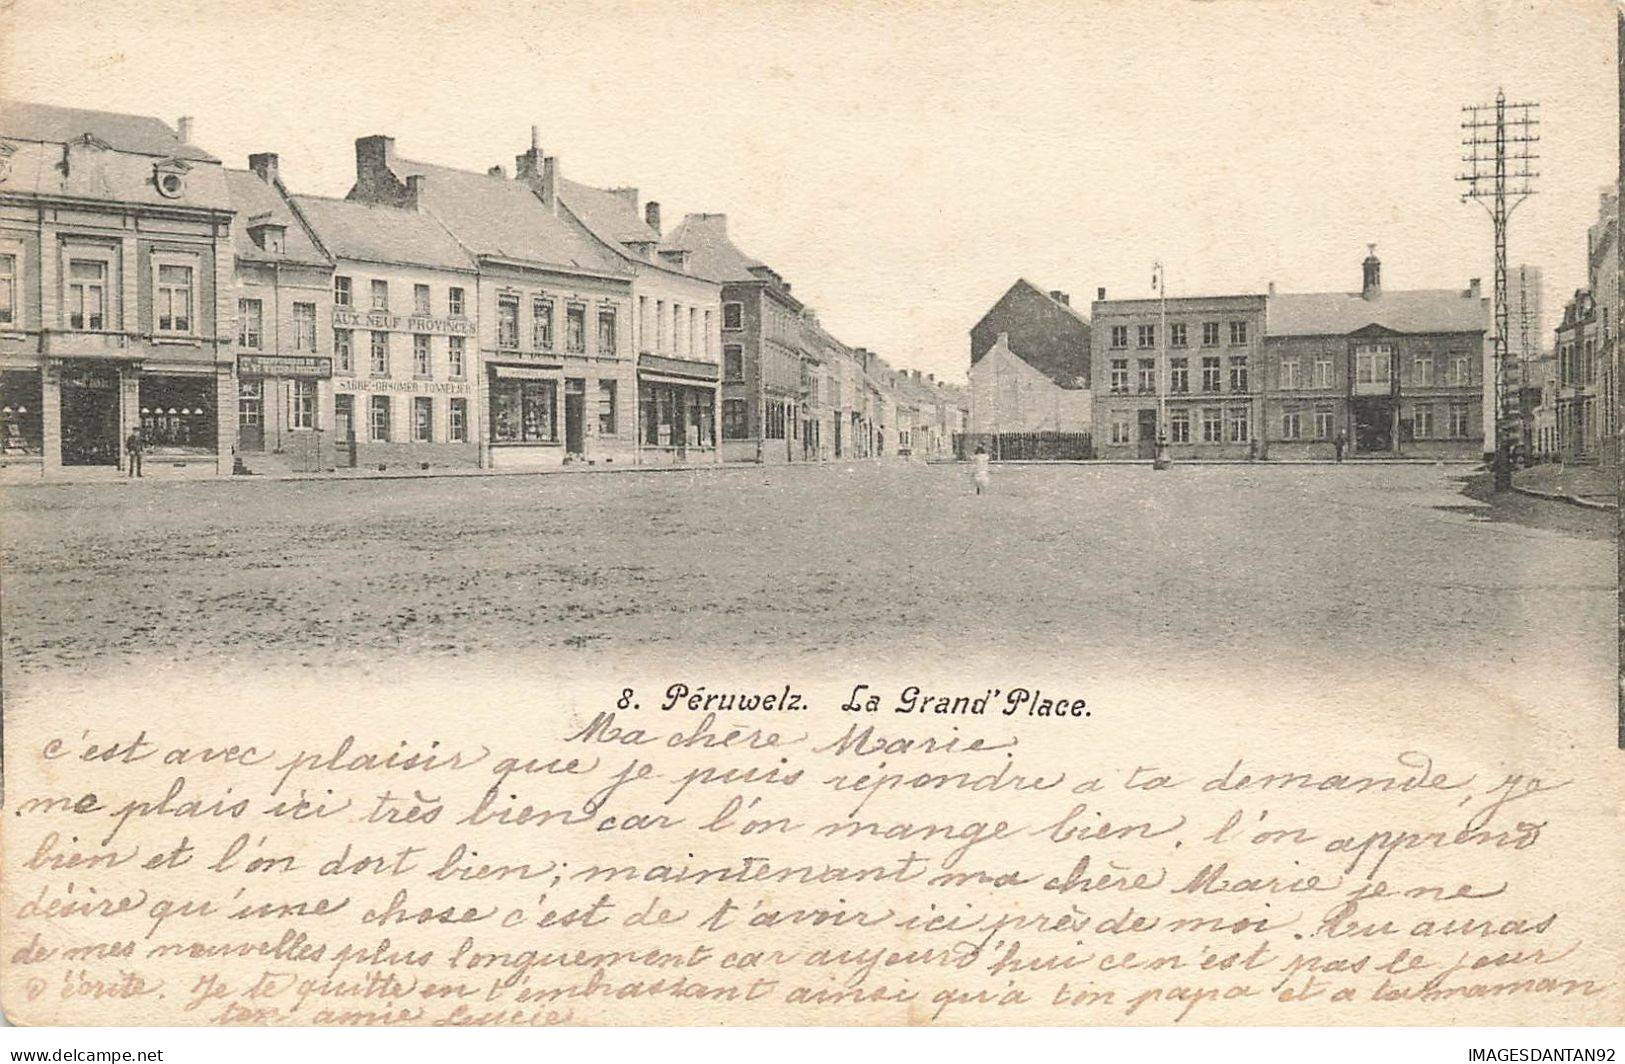 AUX NEUF PROVINCES
SABBE-OBSOMER TONNELIER
8. Péruwelz. La Grand'Place.
Ma chère Marie.
c'est avec plaisir que je puis répondre a ta demande, je
me plais ici très bien car l'on mange bien, l'on apprend
bien et l'on dort bien; maintenant ma chère Marie je ne
désire qu'une chose c'est de t'avoir ici près de moi. Tu auras
de mes nouvelles plus longuement car aujourd'hui ce n'est pas le jour
d'écrite. Je te quitte en t'embrassant ainsi qu'a ton papa et a ta maman
ton amie Lucie
delcampe.net
IMAGESDANTAN92